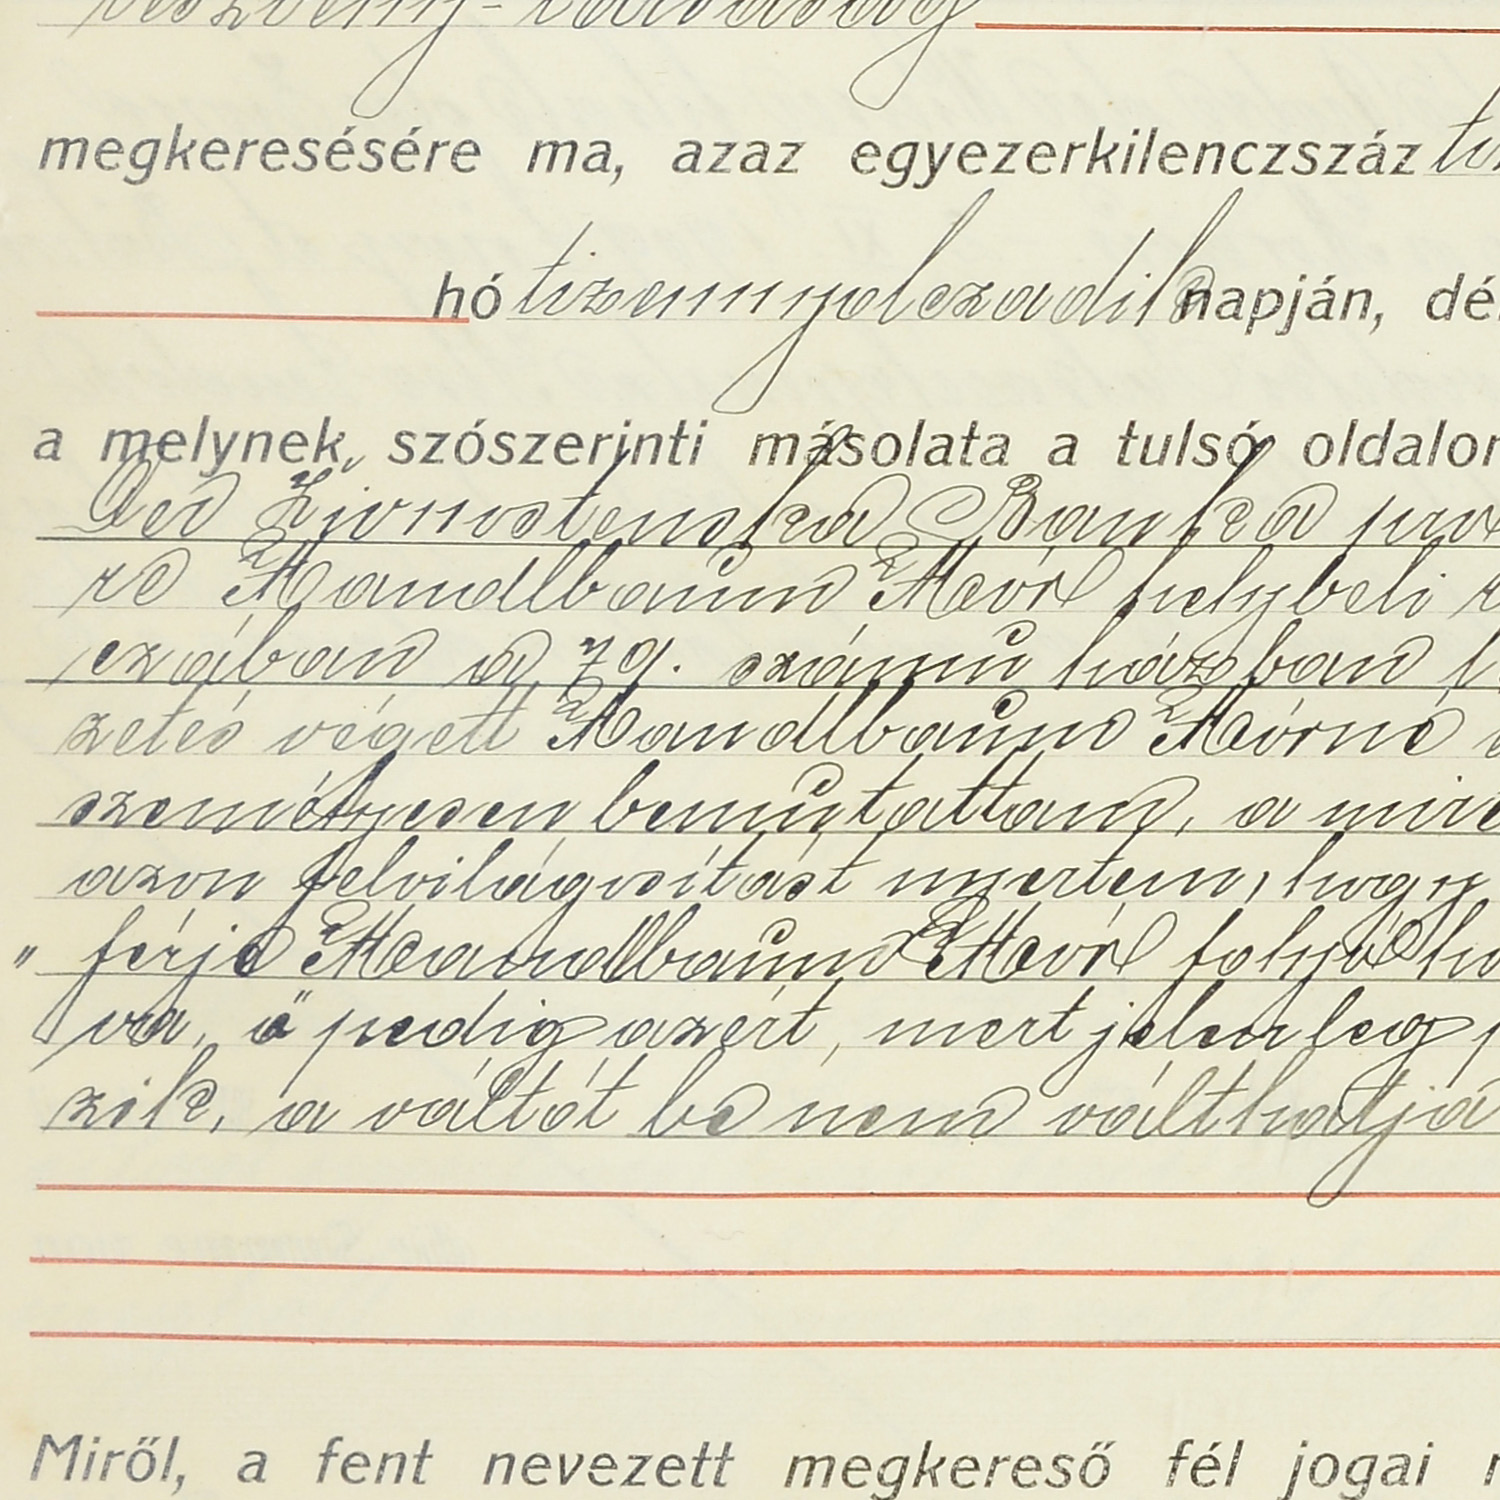 részvény-társaság
megkeresésére ma, azaz egyezerkilenczszáz
hó tizennyolczadik napján, dé
a melynek, szószerinti másolata a tulsó oldalon
Živnostenska Banka
re Mandlbaum Mór helybeli
czában a 79. számu házban
zetés végett Mandlbaum Mórné
személyesen bemutattam, a mire
azon felvilágositást nyertem, hogy
" férje Mandlbaum Mór folyó
va, ő pedig azért, mert jelenleg
zik, a váltót be nem válthatja
Miről, a fent nevezett megkereső fél jogai